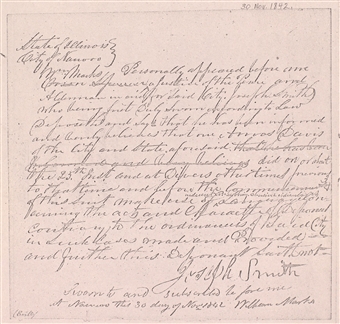 30 Nov 1842
State of Illinois }
City of Nauvoo }
Wm Marks Personally appeared before me
a Justice of the Peace and
Alderman in and for said City, Joseph Smith
who being first duly sworn according to Law
Deposeth and Sayeth that he has been informed
and verily believes that one Amos Davis
of the City and State aforesaid
did on or about
the 25th Inst and at divers other times previous
to that time and before the commencement
of this suit make use of Language
concerning the and Character of Deponent
Contrary to the ordinances of Said City
in such Cases made and Provided
and further this Deponent Saith not
Joseph Smith
Sworn to and subscribed before me
At Nauvoo this 30 day of Nov 1842. William Marks